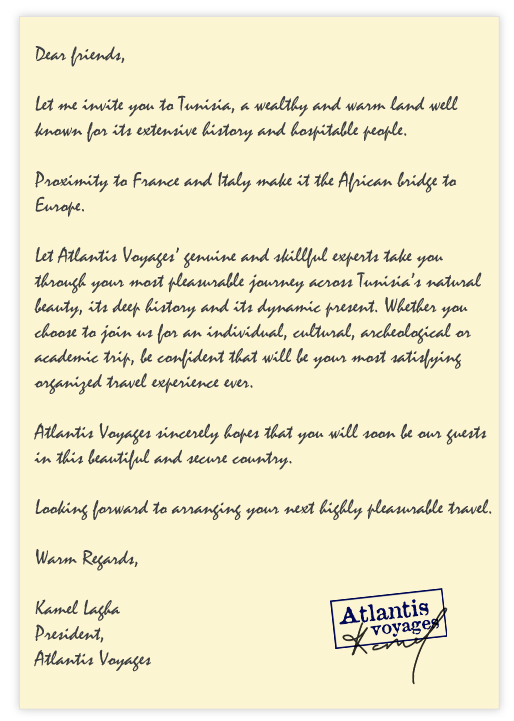 Dear friends,
Let me invite you to Tunisia, a wealthy and warm land well
known for its extensive history and hospitable people.
Proximity to France and Italy make it the African bridge to
Europe.
Let Atlantis Voyages' genuine and skillful experts take you
through your most pleasurable journey across Tunisia's natural
beauty, its deep history and its dynamic present. Whether you
choose to join us for an individual, cultural, archeological or
academic trip, be confident that will be your most satisfying
organized travel experience ever.
Atlantis Voyages sincerely hopes that you will soon be our guests
in this beautiful and secure country.
Looking forward to arranging your next highly pleasurable travel.
Warm Regards,
Kamel Lagha
President,
Atlantis Voyages
Atlantis
voyages
Kamel